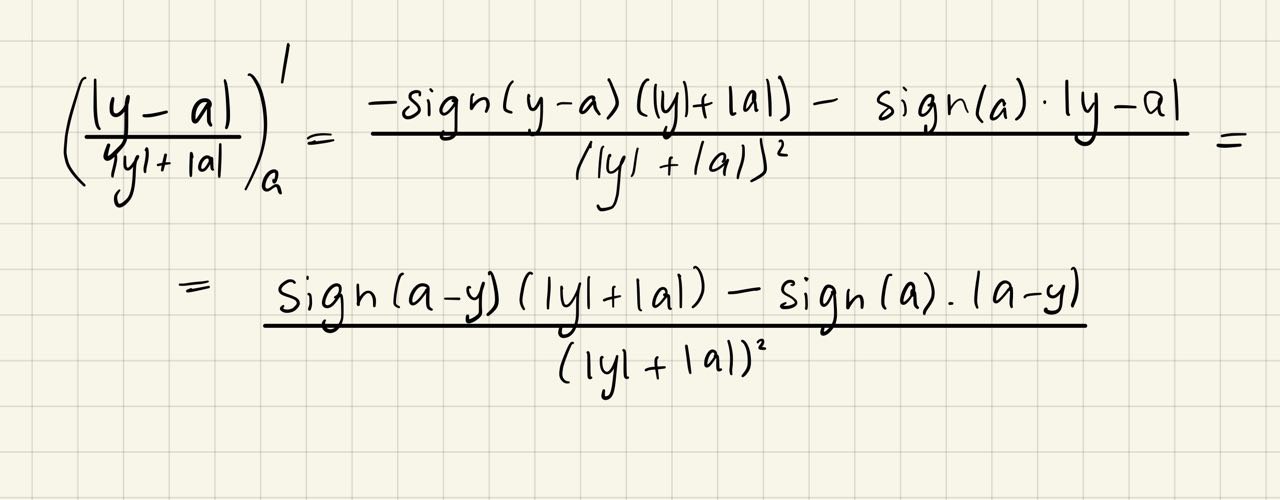 (|y - a| / |y| + |a|)'_a = -sign(y-a)(|y|+|a|) - sign(a)·|y-a| / (|y| + |a|)² =
= sign(a-y)(|y|+|a|) - sign(a).(a-y) / (|y| + |a|)²